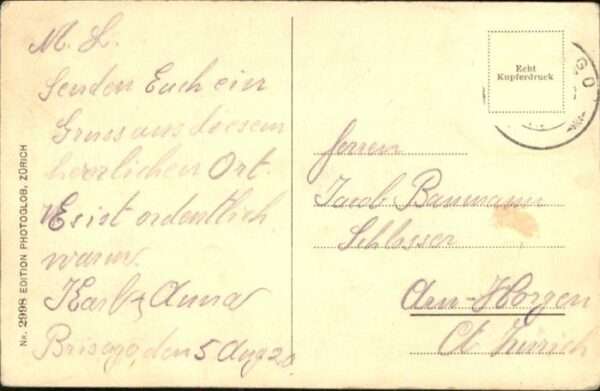 M. L.
Senden Euch ein
Gruss aus diesem
herrlichen Ort.
Es ist ordentlich
warm.
Karl & Anna
Brisago den 5 Aug 20
Nr. 2998 EDITION PHOTOGLOB, ZÜRICH
Echt
Kupferdruck
GO
Herren
Jacob Baumann
Schlosser
Arn-Horgen
Ct Zürich